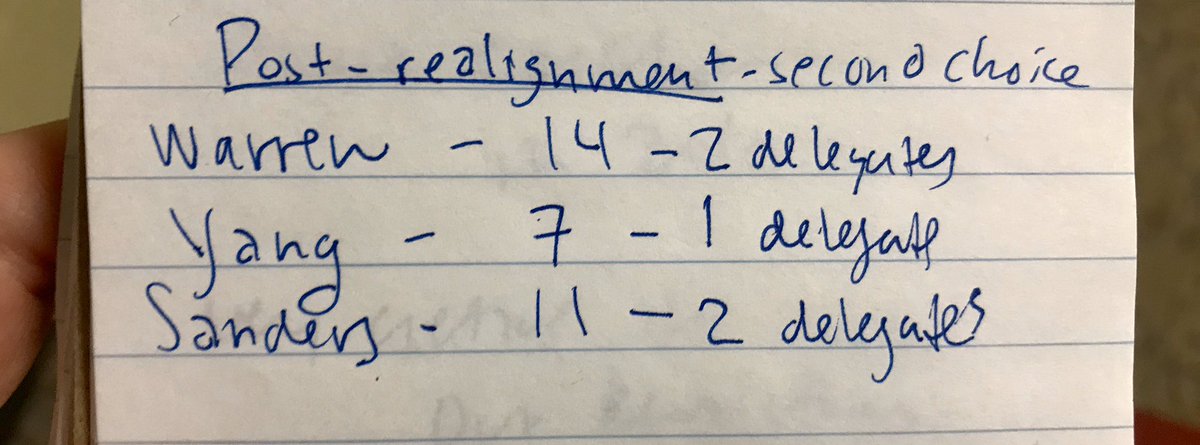 Post-realignment-second choice
Warren - 14 - 2 delegates
Yang - 7 - 1 delegate
Sanders - 11 - 2 delegates